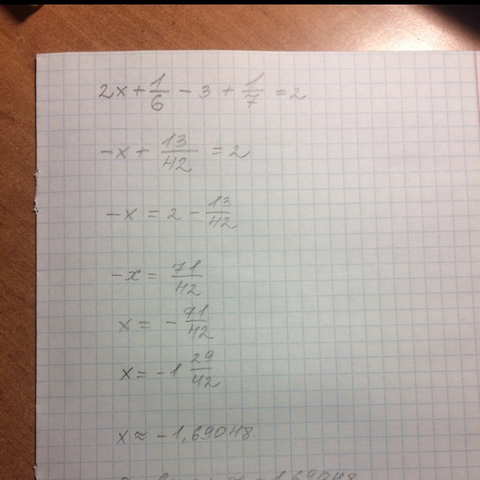 2x + 1/6 - 3 + 1/7 = 2
-x + 13/42 = 2
-x = 2 - 13/42
-x = 71/42
x = - 71/42
x = -1 29/42
x ≈ -1,69048